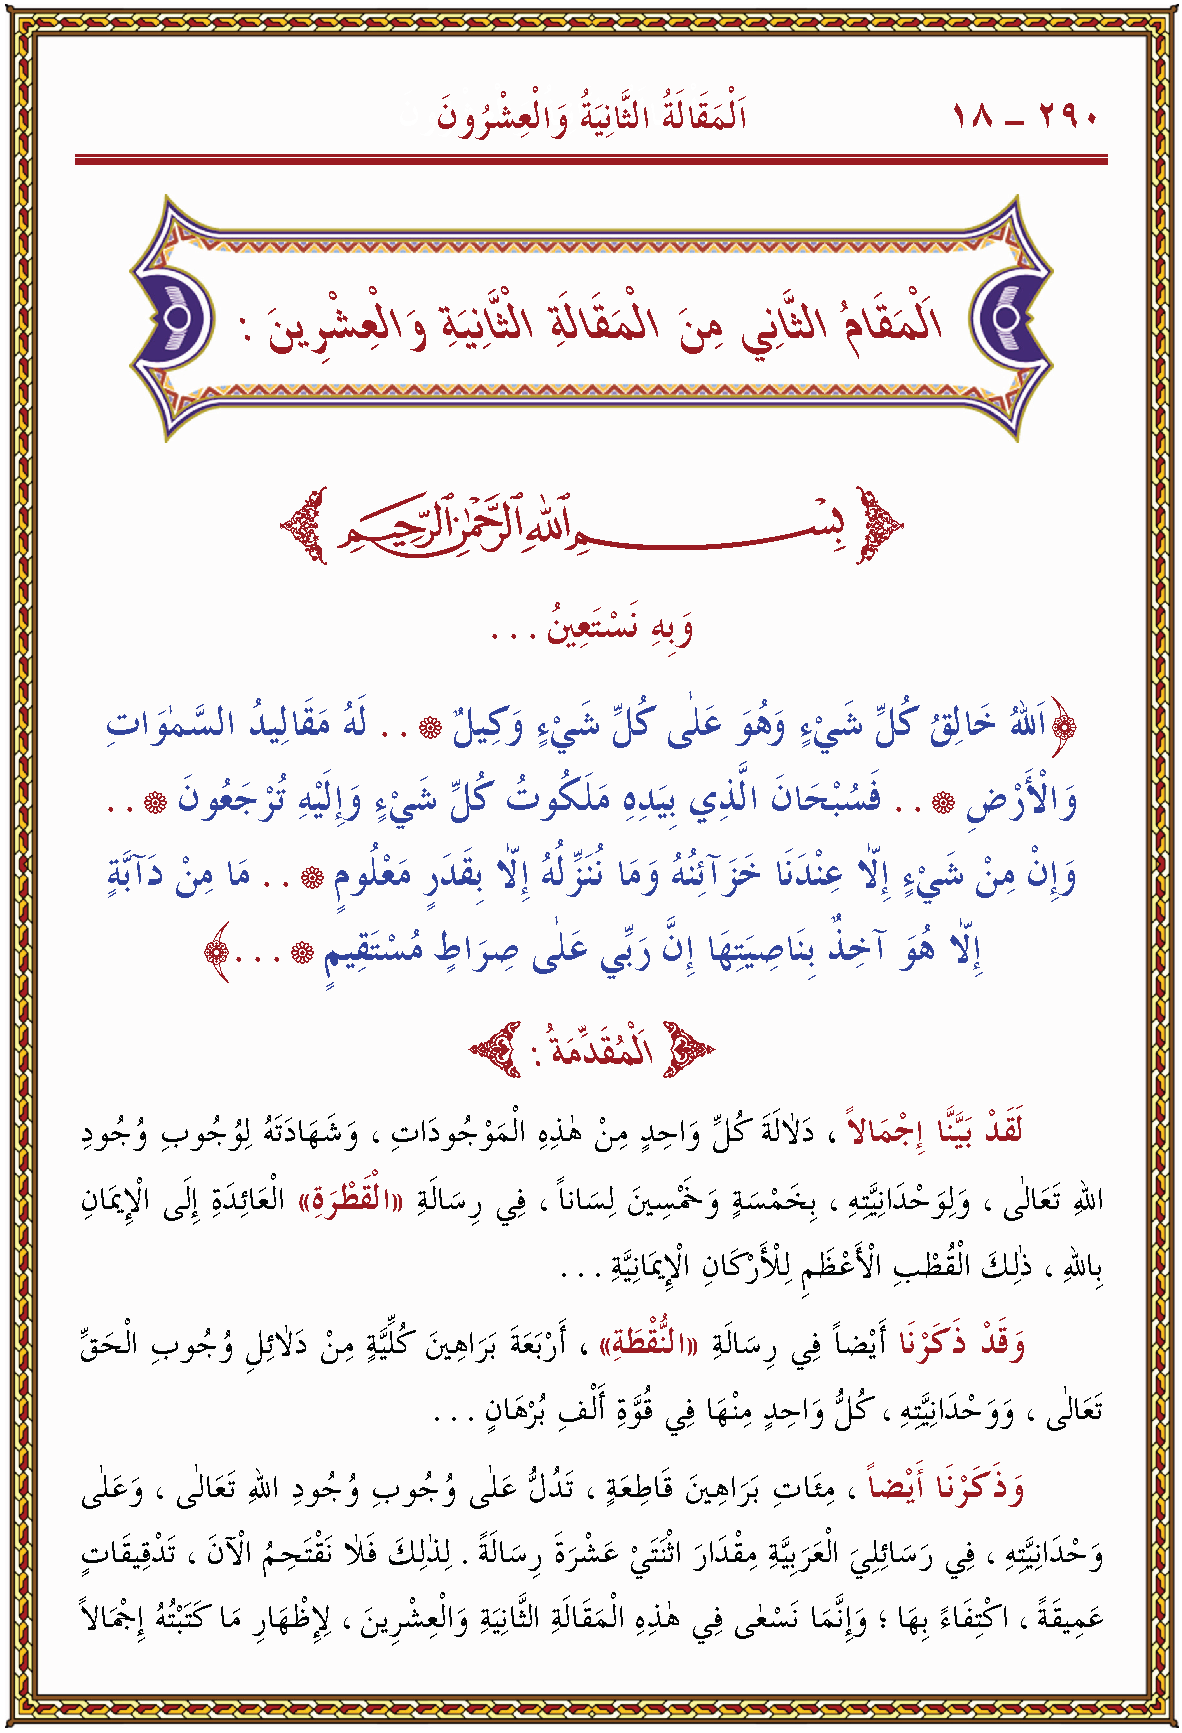 ٢٩٠ – ١٨ اَلْمَقَالَةُ الثَّانِيَةُ وَالْعِشْرُونَ
اَلْمَقَامُ الثَّانِي مِنَ الْمَقَالَةِ الثَّانِيَةِ وَالْعِشْرِينَ :
بِسْمِ اللهِ الرَّحْمٰنِ الرَّحِيمِ
وَبِهِ نَسْتَعِينُ . . .
﴿اَللهُ خَالِقُ كُلِّ شَيْءٍ وَهُوَ عَلٰى كُلِّ شَيْءٍ وَكِيلٌ ۞ . . لَهُ مَقَالِيدُ السَّمٰوَاتِ
وَالْأَرْضِ ۞ . . فَسُبْحَانَ الَّذِي بِيَدِهِ مَلَكُوتُ كُلِّ شَيْءٍ وَإِلَيْهِ تُرْجَعُونَ ۞ . .
وَإِنْ مِنْ شَيْءٍ إِلاّٰ عِنْدَنَا خَزَآئِنُهُ وَمَا نُنَزِّلُهُ إِلاّٰ بِقَدَرٍ مَعْلُومٍ ۞ . . مَا مِنْ دَآبَّةٍ
إِلاّٰ هُوَ آخِذٌ بِنَاصِيَتِهَا إِنَّ رَبِّي عَلٰى صِرَاطٍ مُسْتَقِيمٍ ۞ . . .﴾
اَلْمُقَدِّمَةُ :
لَقَدْ بَيَّنَّا إِجْمَالاً ، دَلاٰلَةَ كُلِّ وَاحِدٍ مِنْ هٰذِهِ الْمَوْجُودَاتِ ، وَشَهَادَتَهُ لِوُجُوبِ وُجُودِ
اللهِ تَعَالٰى ، وَلِوَحْدَانِيَّتِهِ ، بِخَمْسَةٍ وَخَمْسِينَ لِسَاناً ، فِي رِسَالَةِ «الْقَطْرَةِ» الْعَائِدَةِ إِلَى الْإِيمَانِ
بِاللهِ ، ذٰلِكَ الْقُطْبِ الْأَعْظَمِ لِلْأَرْكَانِ الْإِيمَانِيَّةِ . . .
وَقَدْ ذَكَرْنَا أَيْضاً فِي رِسَالَةِ «النُّقْطَةِ» ، أَرْبَعَةَ بَرَاهِينَ كُلِّيَّةٍ مِنْ دَلاٰئِلِ وُجُوبِ الْحَقِّ
تَعَالٰى ، وَوَحْدَانِيَّتِهِ ، كُلُّ وَاحِدٍ مِنْهَا فِي قُوَّةِ أَلْفِ بُرْهَانٍ . . .
وَذَكَرْنَا أَيْضاً ، مِئَاتِ بَرَاهِينَ قَاطِعَةٍ ، تَدُلُّ عَلٰى وُجُوبِ وُجُودِ اللهِ تَعَالٰى ، وَعَلٰى
وَحْدَانِيَّتِهِ ، فِي رَسَائِلِيَ الْعَرَبِيَّةِ مِقْدَارَ اثْنَتَيْ عَشْرَةَ رِسَالَةً . لِذٰلِكَ فَلاٰ نَقْتَحِمُ الْآنَ ، تَدْقِيقَاتٍ
عَمِيقَةً ، اكْتِفَاءً بِهَا ؛ وَإِنَّمَا نَسْعٰى فِي هٰذِهِ الْمَقَالَةِ الثَّانِيَةِ وَالْعِشْرِينَ ، لِإِظْهَارِ مَا كَتَبْتُهُ إِجْمَالاً